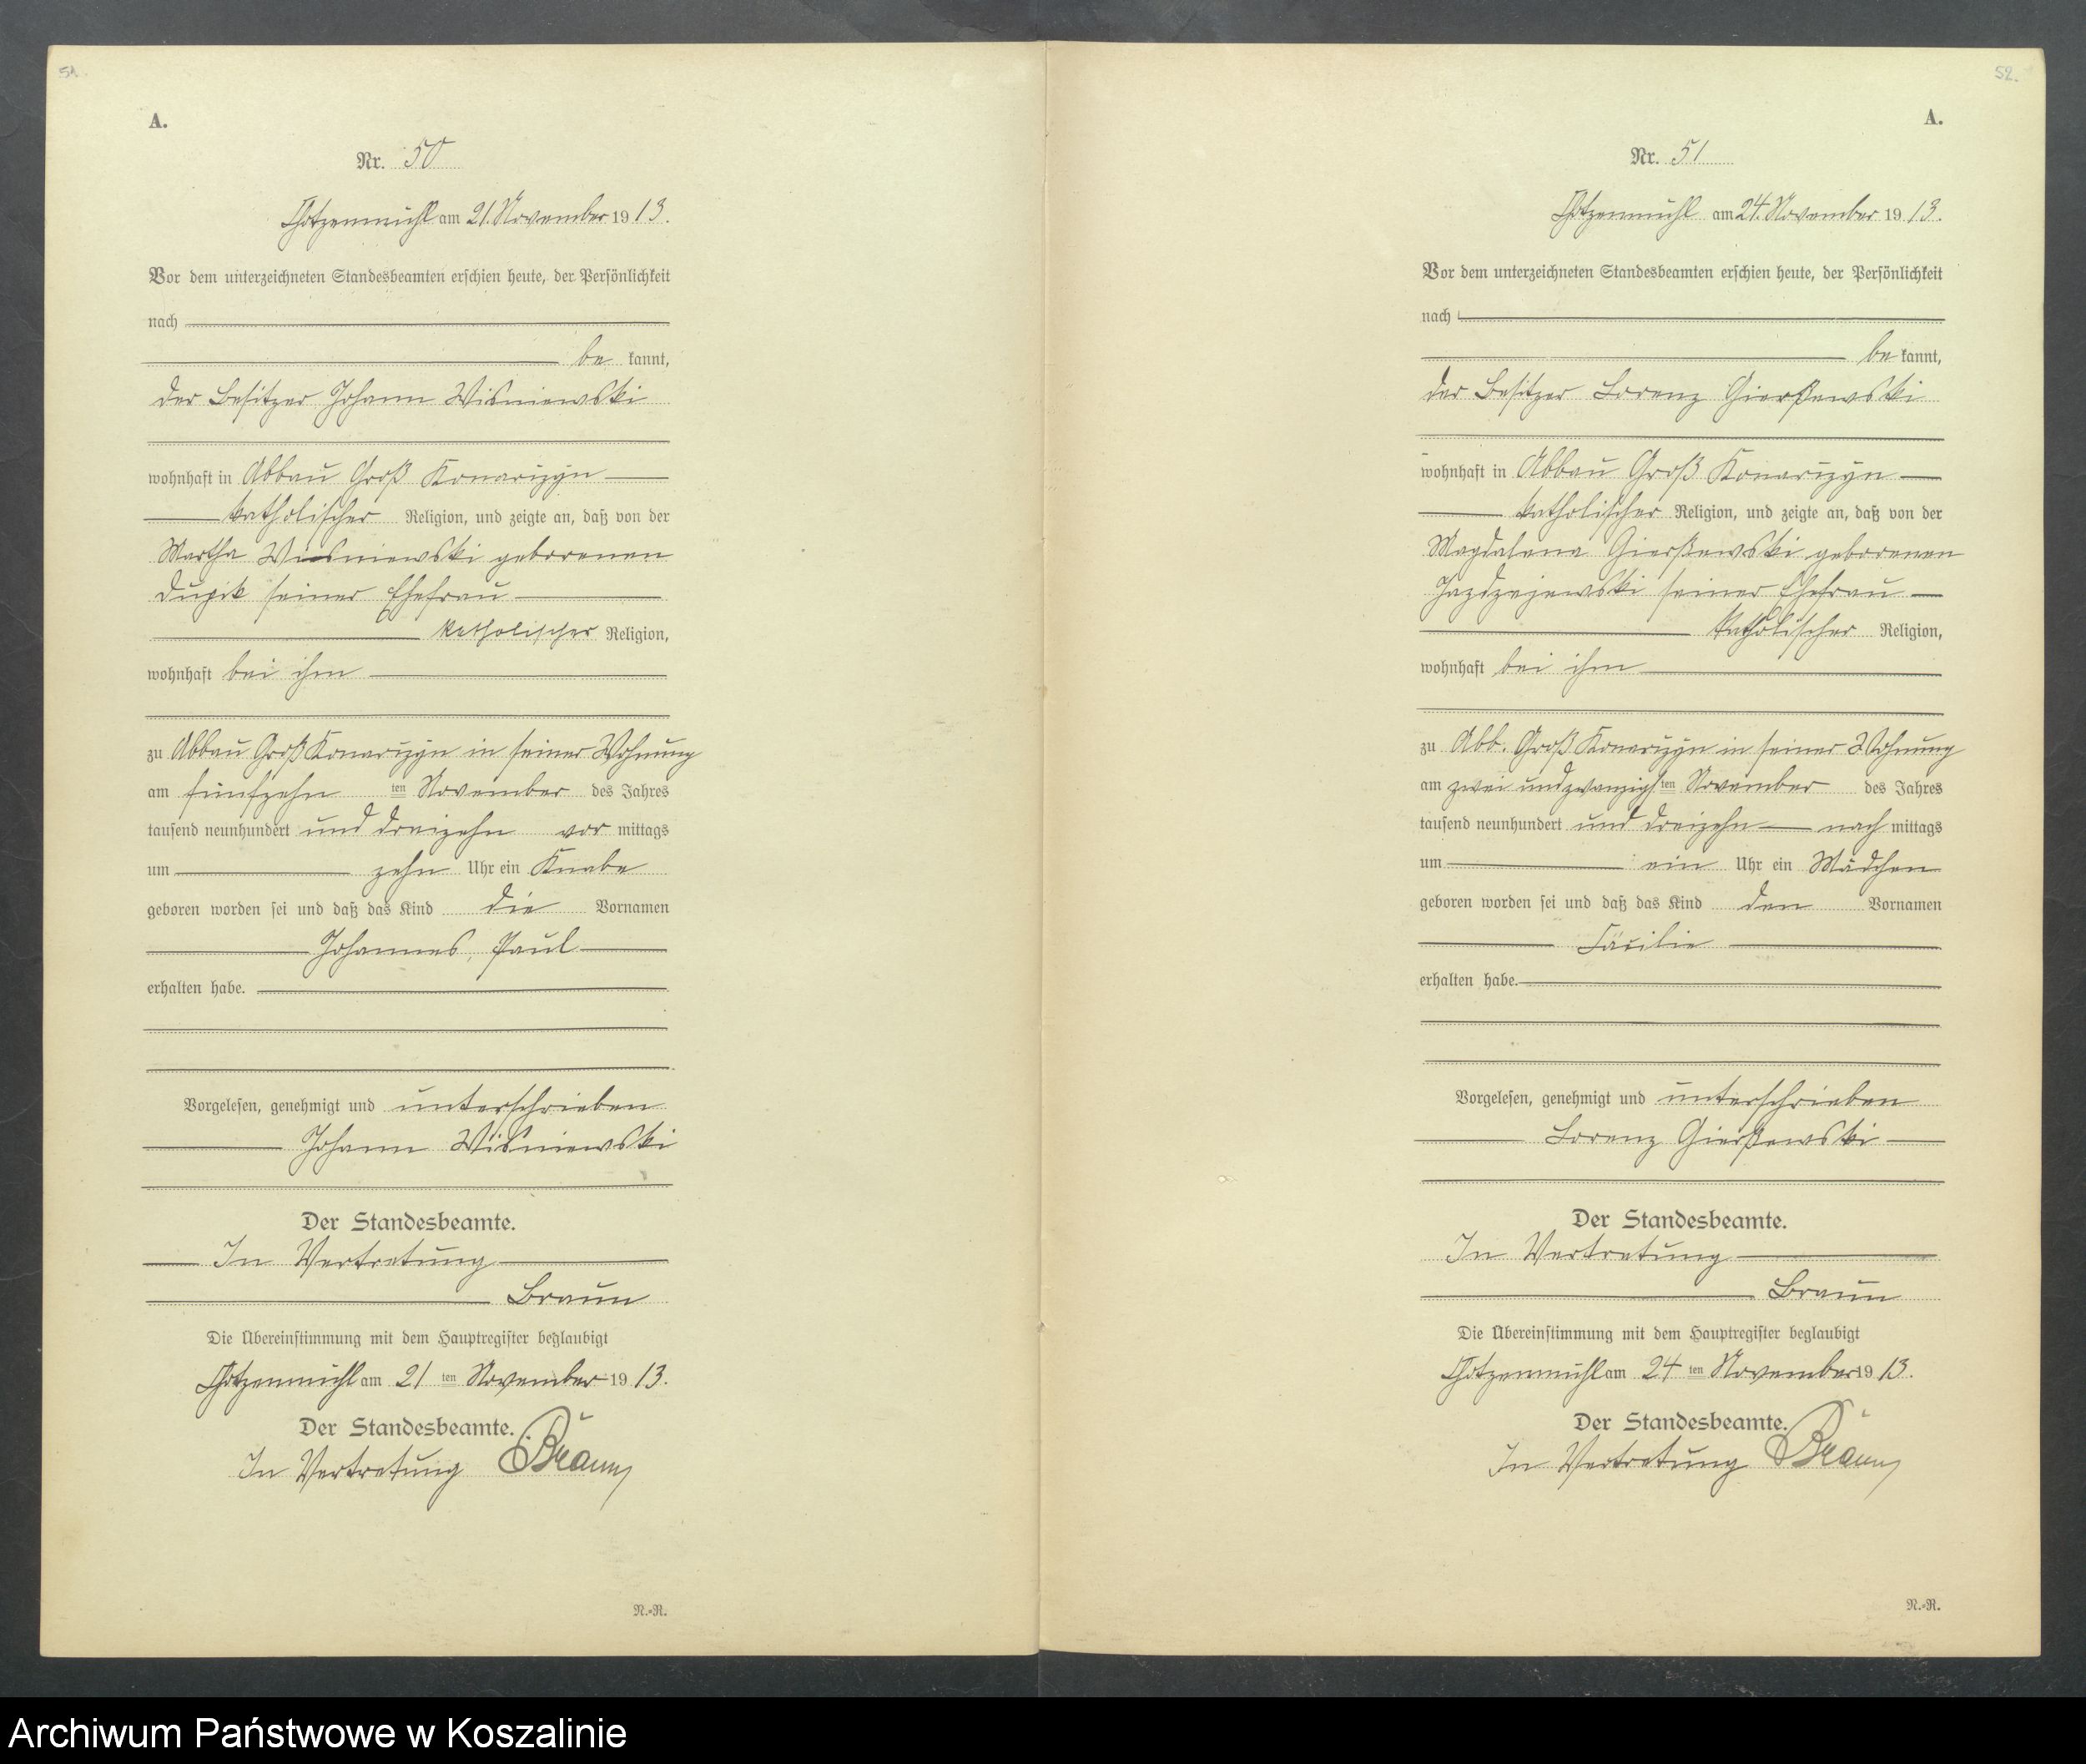 51.
A.
Nr. 50
Chotzenmühl am 21. November 1913.
Vor dem unterzeichneten Standesbeamten erschien heute, der Persönlichkeit
nach
be kannt,
der Besitzer Johann Wisniewski
wohnhaft in Abbau Groß Konarczyn
katholischer Religion, und zeigte an, daß von der
Martha Wisniewski geborenen
seiner Ehefrau
katholischer Religion,
wohnhaft bei ihm
zu Abbau Groß Konarczyn in seiner Wohnung
am fünfzehn ten November des Jahres
tausend neunhundert und dreizehn vor mittags
um zehn Uhr ein Knabe
geboren worden sei und daß das Kind die Vornamen
Johannes, Paul
erhalten habe.
Vorgelesen, genehmigt und unterschrieben
Johann Wisniewski
Der Standesbeamte.
In Vertretung
Braun
Die Übereinstimmung mit dem Hauptregister beglaubigt
Chotzenmühl am 21 ten November 1913.
Der Standesbeamte.
In Vertretung Braun
N.-R.
52.
A.
Nr. 51
Chotzenmühl am 24. November 1913.
Vor dem unterzeichneten Standesbeamten erschien heute, der Persönlichkeit
nach
be kannt,
der Besitzer Lorenz Gierßewski
wohnhaft in Abbau Groß Konarczyn
katholischer Religion, und zeigte an, daß von der
Magdalena Gierßewski geborenen
Jazdzejewski seiner Ehefrau
katholischer Religion,
wohnhaft bei ihm
zu Abb. Groß Konarczyn in seiner Wohnung
am zwei und zwanzigsten November des Jahres
tausend neunhundert und dreizehn nach mittags
um ein Uhr ein Mädchen
geboren worden sei und daß das Kind den Vornamen
Cäcilie
erhalten habe.
Vorgelesen, genehmigt und unterschrieben
Lorenz Gierßewski
Der Standesbeamte.
In Vertretung
Braun
Die Übereinstimmung mit dem Hauptregister beglaubigt
Chotzenmühl am 24 ten November 1913.
Der Standesbeamte.
In Vertretung Braun
N.-R.
Archiwum Państwowe w Koszalinie